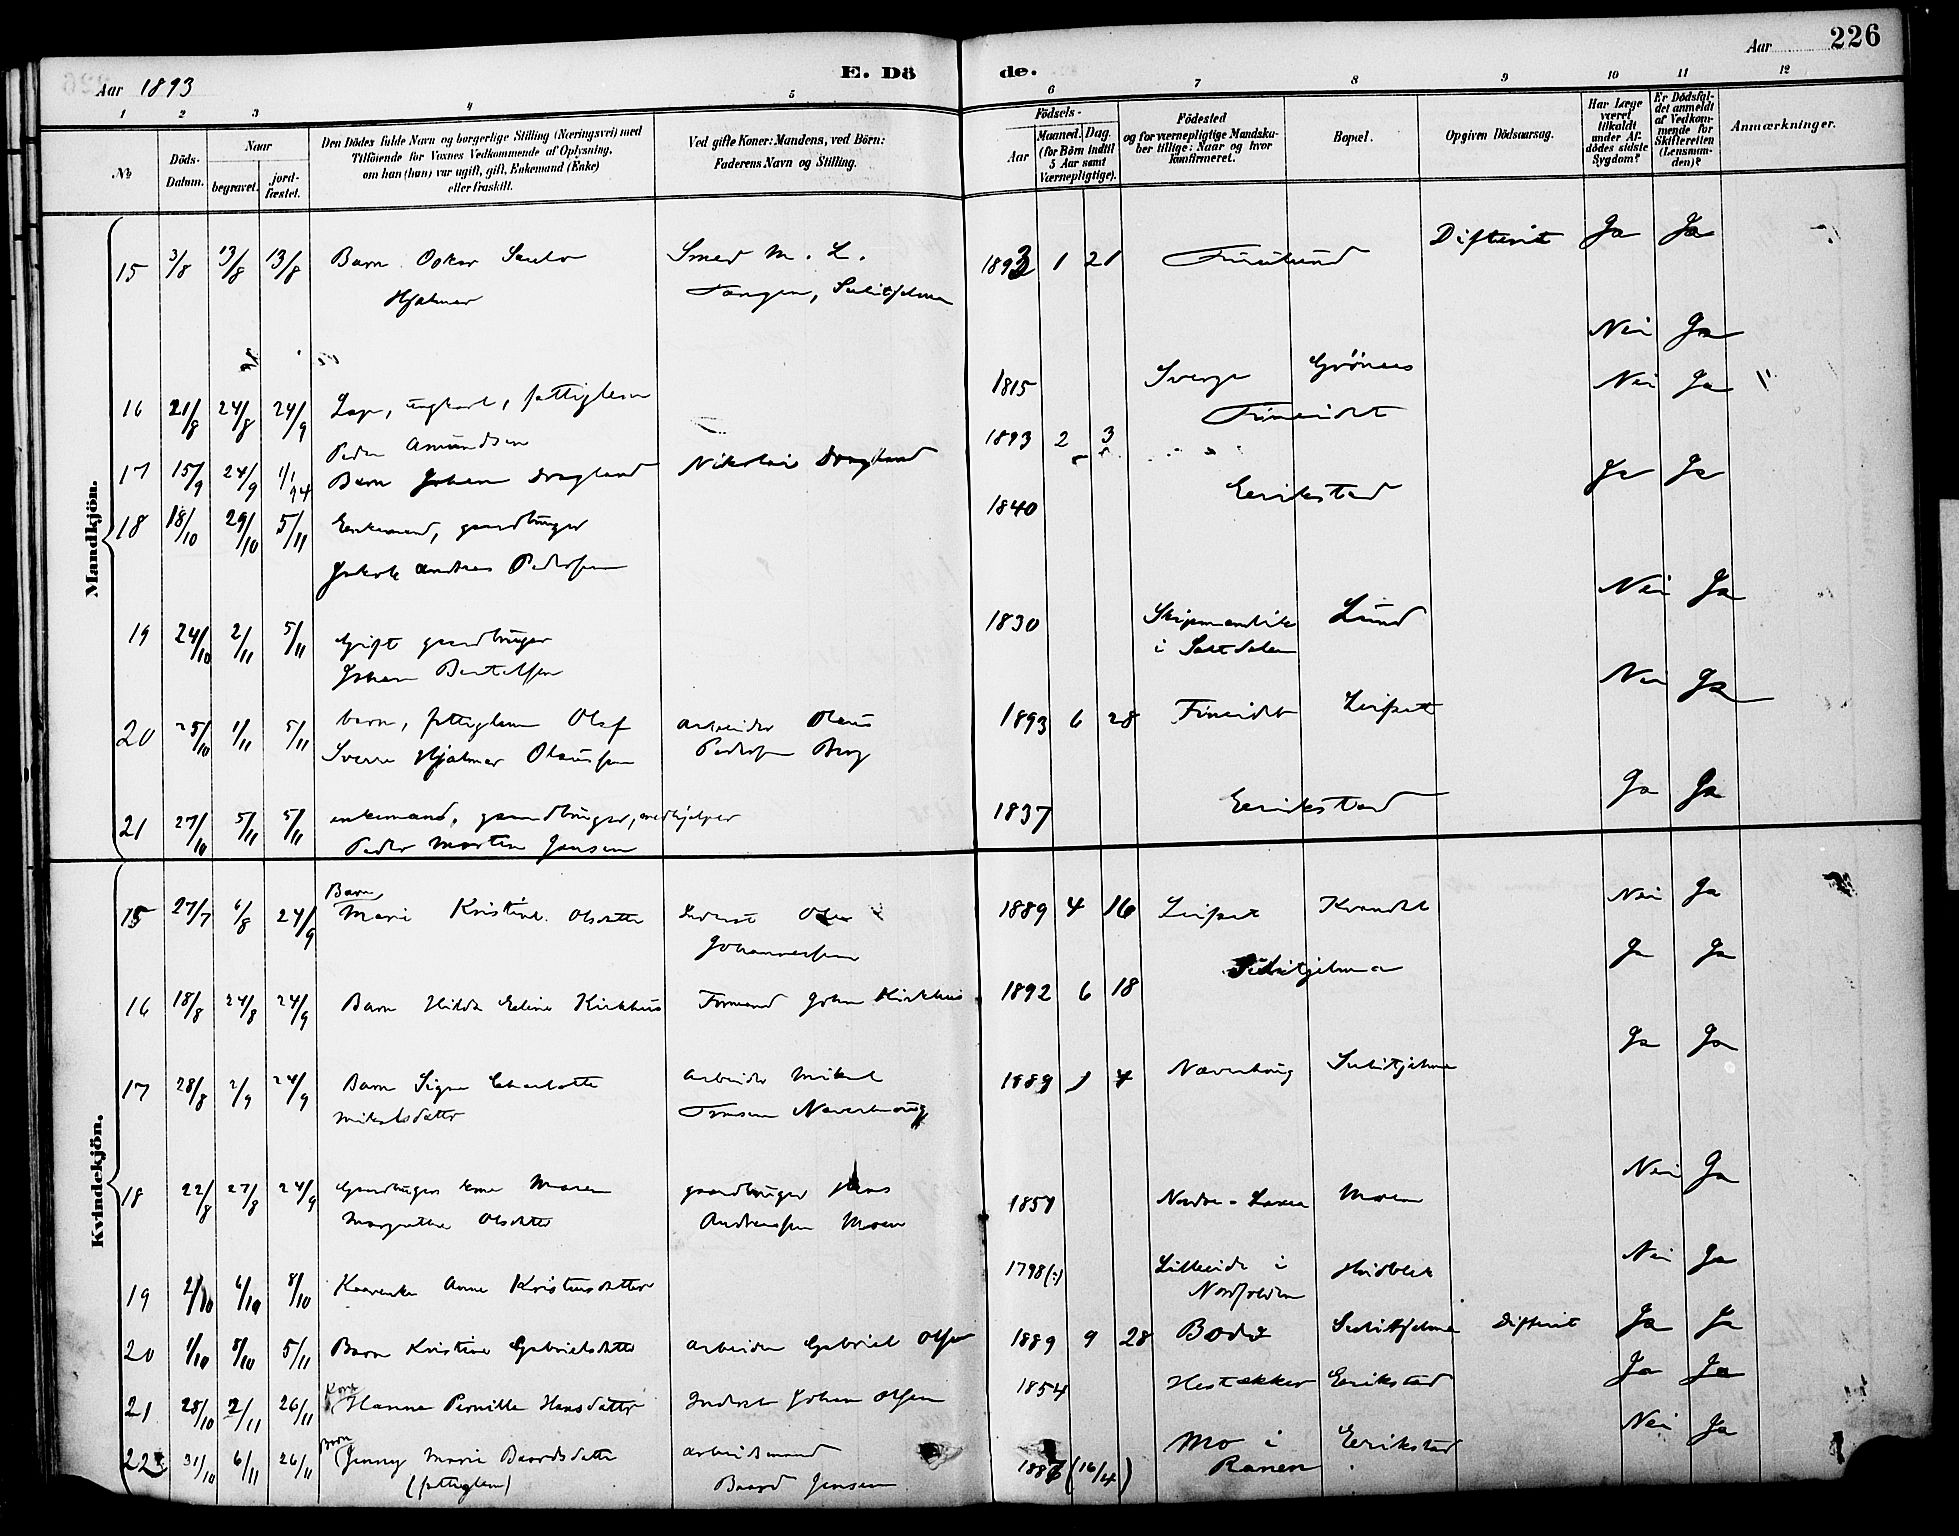 Aar 1893
E. Dö
de.
Aar
226
1 2 3 4 5 6 7 8 9 10 11 12
№
Döds-Datum.
Naar
begravet.
jord-fæstet.
Den Dödes fulde Navn og borgerlige Stilling (Næringsvei) med
Tilföiende for Voxnes Vedkommende af Oplysning,
om han (hun) var ugift, gift, Enkemand (Enke)
eller fraskilt.
Ved gifte Koner: Mandens, ved Börn:
Faderens Navn og Stilling.
Födsels-
Aar
Maaned. Dag.
(for Börn indtil
5 Aar samt
Værnepligtige).
Födested
og for værnepligtige Mandska-
ber tillige: Naar og hvor
konfirmeret.
Bopæl.
Opgiven Dödsaarsag.
Har Læge
været
tilkaldt
under Af-
dödes sidste
Sygdom?
Er Dödsfal-
det anmeldt
af Vedkom-
mende for
Skifteretten
(Lensman-
den)?
Anmærkninger.
Mandkjön.
15 3/8 13/8 13/8 Barn Oskar
Hjalmar
Smed M. L.
Tangen, Sulitjelma
1893 1 21 Difterit Ja Ja
Nei Ja
16 21/8 24/8 24/9 Lap, ungkarl, fattiglem
Peder Amundsen
1815 Sverge Grönnes Nei Ja
17 15/9 24/9 1/1 94 Barn Johan Dragland Nikolai Dragland 1893 2 3 Fineidet
18 18/10 29/10 5/11 Enkemand, gaardbruger
Jakob Andreas Pedersen
1840 Eerikstad Ja Ja
19 24/10 2/11 5/11 Gift gaardbruger
Johan Bertelsen
1830 Skipmandvik
i Saltdalen
Lund Nei Ja
20 25/10 1/11 5/11 barn, fattiglem Olaf
Sverre Hjalmar Olaussen
arbeider Olaus
Pedersen Berg
1893 6 28 Fineidet Leifset Nei Ja
21 27/10 5/11 5/11 enkemand, gaardbruger, medhjelper
Peder Morten Jensen
1837 Eerikstad Ja Ja
Kvindekjön.
15 27/7 6/8 24/9 Barn
Marie Kristine Olsdatter
Inderst Ole
Johannessen
1889 4 16 Leifset Kvandal Nei Ja
16 18/8 24/8 24/9 Barn Hilda Eline Kirkhus Formand Johan Kirkhus 1892 6 18 Sulitjelma Ja Ja
17 28/8 2/9 24/9 Barn Signe Charlotte
Mikalsdatter
Arbeider Mikal
Tonsen Næverhoug
1889 1 4 Næverhoug Sulitjelma Ja Ja
18 22/8 27/8 24/9 Gaardbrugers kone Maren
Margrethe Olsdatter
gaardbruger Hans
Andreassen Moen
1857 Nordre-Laxaa Moen Nei Ja
19 2/10 6/10 8/10 Kaarenke Anne Kristensdatter 1798(:) Lilleeide i
Nordfolden
Hvidblik Nei Ja
20 1/10 8/10 5/11 Barn Kristine Gabrielsdatter Arbeider Gabriel Olsen 1889 9 28 Bodø Sulitjelma Difterit Ja Ja
21 28/10 2/11 26/11 Kone
Hanna Pernille Hansdatter Inderst Johan Olsen 1854 Hestakker Eerikstad Ja Ja
22 31/10 6/11 26/11 Barn
Jenny Marie Baardsdatter
(fattiglem)
arbeidsmand
Baard Jensen
1887 (16/4) Mo i
Ranen
Eerikstad Nei Ja